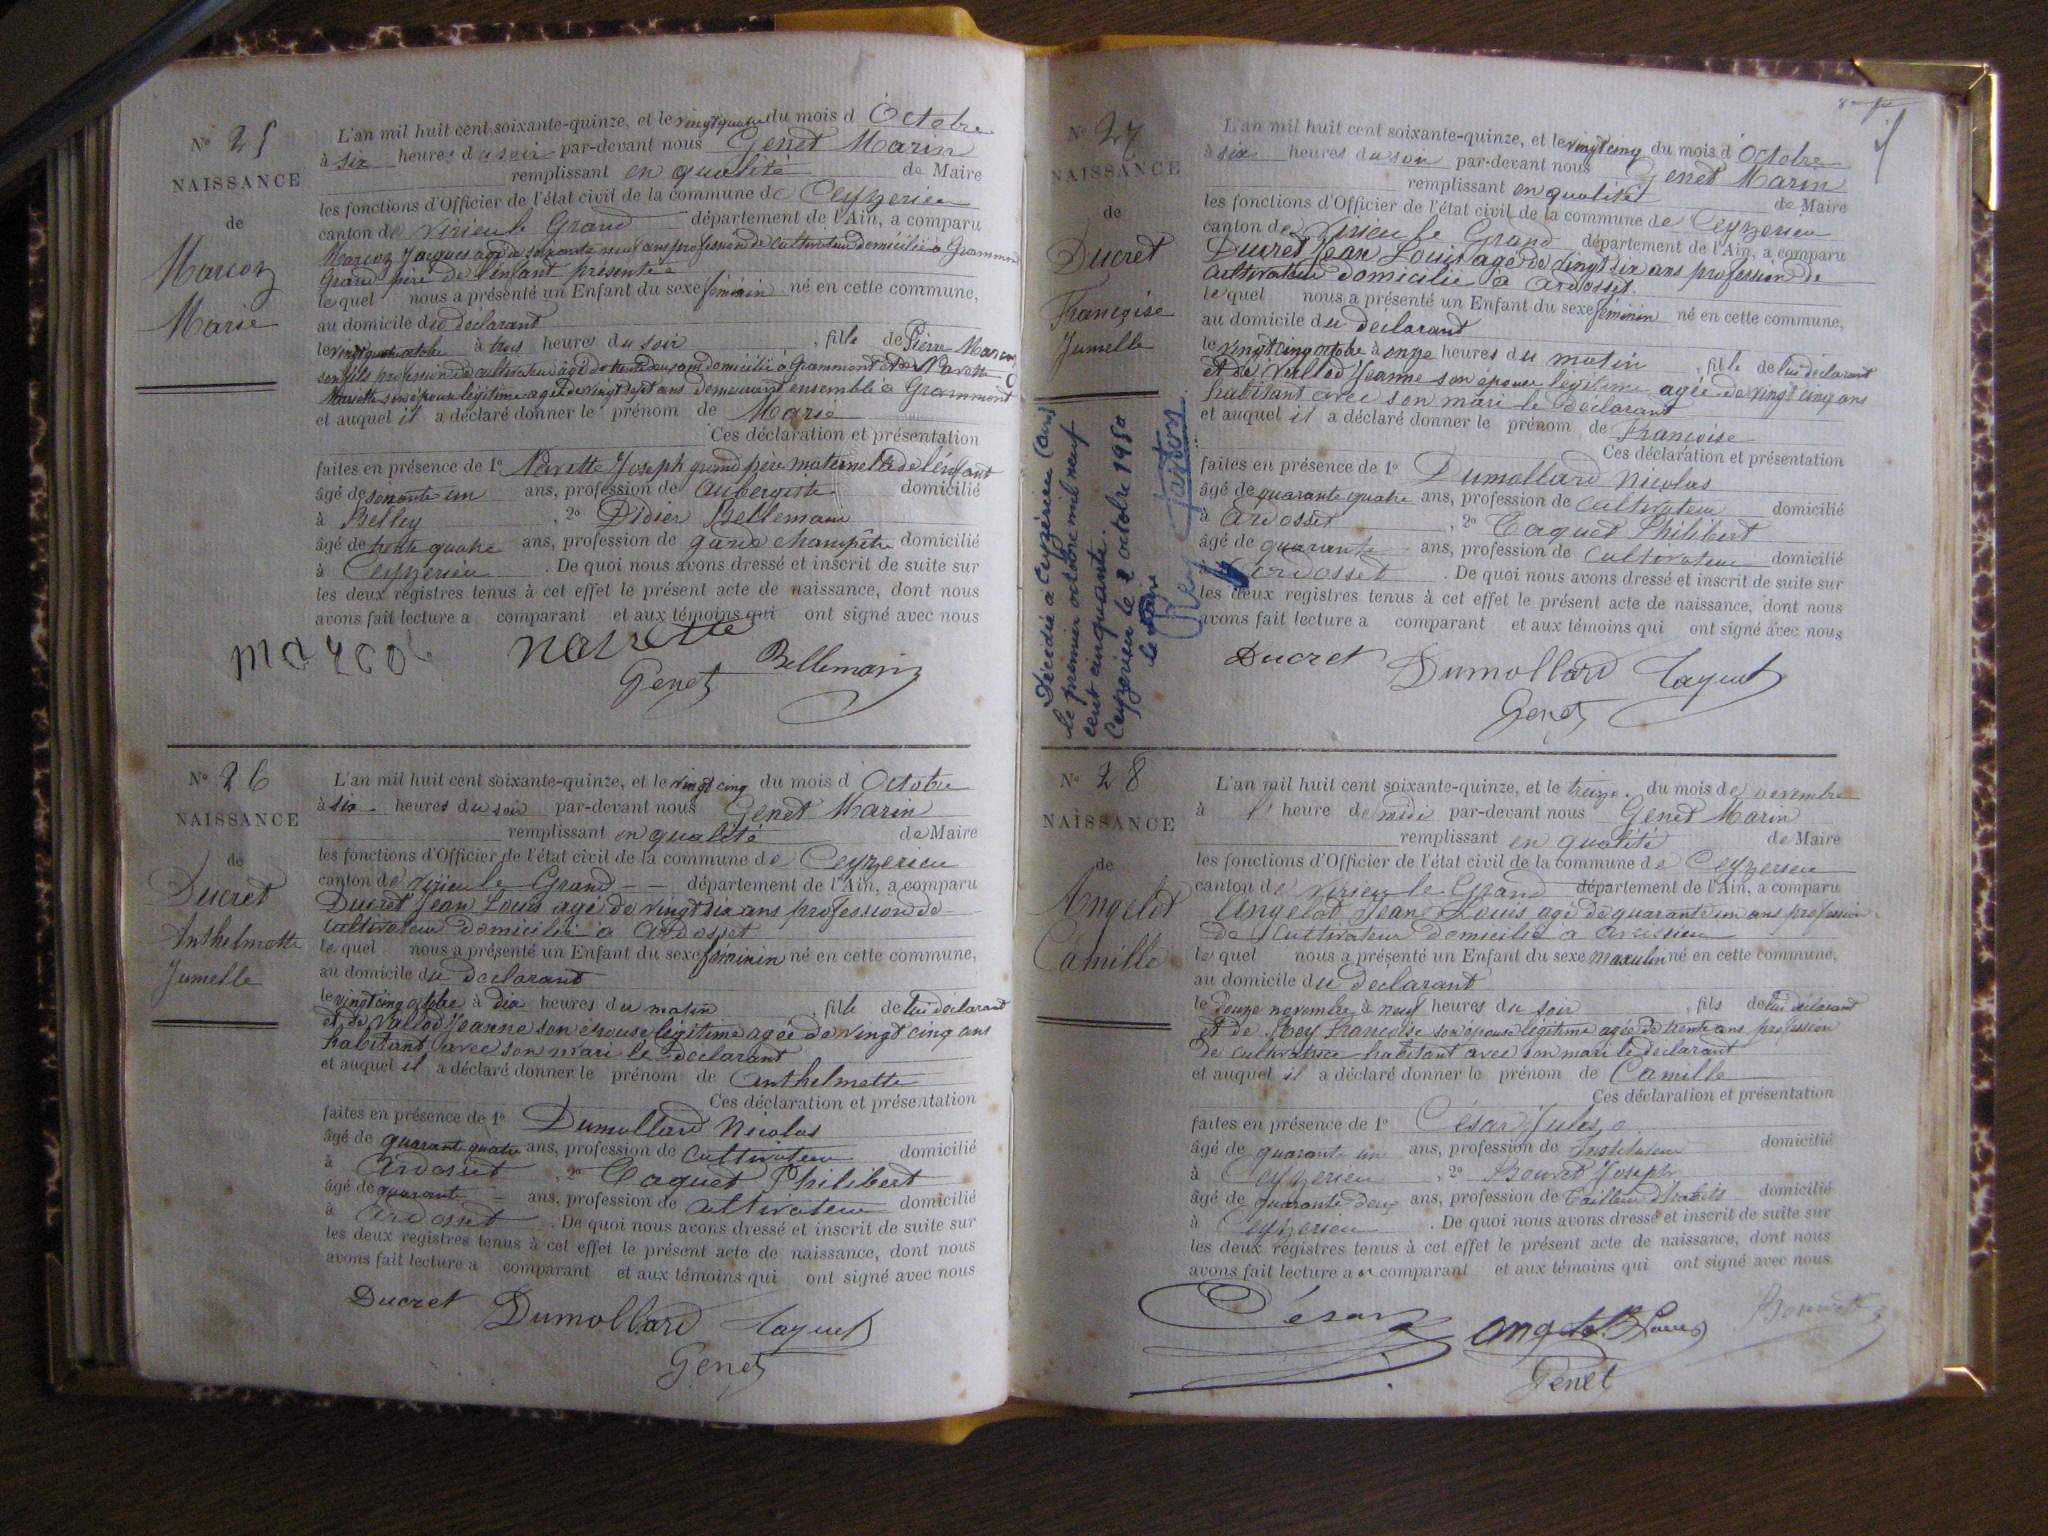 N° 25
NAISSANCE
de
Marcoz
Marie
L'an mil huit cent soixante-quinze, et le vingt quatre du mois d Octobre
à six heures du soir par-devant nous Genet Marin
remplissant en qualité de Maire
les fonctions d'Officier de l'état civil de la commune de Ceyzerieu
canton de Virieu le Grand département de l'Ain, a comparu
Marcoz Jacques agé de soixante neuf ans profession de cultivateur domicilié à Grammont
Grand père de l'enfant présenté
le quel nous a présenté un Enfant du sexe féminin né en cette commune,
au domicile du déclarant
le vingt quatre octobre à trois heures du soir , fille de Pierre Marcoz
son fils profession de cultivateur âgé de trente deux ans domicilié à Grammont et de Navette
Navette son épouse légitime agée de vingt sept ans demeurant ensemble à Grammont
et auquel il a déclaré donner le prénom de Marie
Ces déclaration et présentation
faites en présence de 1° Navette Joseph grand père maternel de l'énfant
âgé de soixante un ans, profession de Aubergiste domicilié
à Belley , 2° Didier Bellemain
âgé de trente quatre ans, profession de garde champêtre domicilié
à Ceyzerieu . De quoi nous avons dressé et inscrit de suite sur
les deux registres tenus à cet effet le présent acte de naissance, dont nous
avons fait lecture a comparant et aux témoins qui ont signé avec nous
marcoz navette Bellemain
Genet
N° 26
NAISSANCE
de
Ducret
Anthelmette
Jumelle
L'an mil huit cent soixante-quinze, et le vingt cinq du mois d Octobre
à six heures du soir par-devant nous Genet Marin
remplissant en qualité de Maire
les fonctions d'Officier de l'état civil de la commune de Ceyzerieu
canton de Virieu le Grand département de l'Ain, a comparu
Ducret Jean Louis agé de vingt six ans profession de
cultivateur domicilié a Ardosset
le quel nous a présenté un Enfant du sexe féminin né en cette commune,
au domicile du declarant
le vingt cinq octobre à dix heures du matin , fille de lui déclarant
et de Vallod Jeanne son epouse légitime agée de vingt cinq ans
habitant avec son mari le declarant
et auquel il a déclaré donner le prénom de Anthelmette
Ces déclaration et présentation
faites en présence de 1° Dumollard Nicolas
âgé de quarante quatre ans, profession de cultivateur domicilié
à Ardosset , 2° Taquet Philibert
âgé de quarante ans, profession de cultivateur domicilié
à Ardosset . De quoi nous avons dressé et inscrit de suite sur
les deux registres tenus à cet effet le présent acte de naissance, dont nous
avons fait lecture a comparant et aux témoins qui ont signé avec nous
Ducret Dumollard Taquet
Genet
8
N° 27
NAISSANCE
de
Ducret
Françoise
Jumelle
Décédée à Ceyzérieu (Ain)
le premier octobre mil neuf
cent cinquante.
Ceyzerieu le 2 octobre 1950
le Maire
L'an mil huit cent soixante-quinze, et le vingt cinq du mois d Octobre
à six heures du soir par-devant nous Genet Marin
remplissant en qualité de Maire
les fonctions d'Officier de l'état civil de la commune de Ceyzerieu
canton de Virieu le Grand département de l'Ain, a comparu
Ducret Jean Louis agé de vingt six ans profession de
cultivateur domicilié à Ardosset
le quel nous a présenté un Enfant du sexe féminin né en cette commune,
au domicile du déclarant
le vingt cinq octobre à onze heures du matin , fille de lui déclarant
et de Vallod Jeanne son épouse légitime agée de vingt cinq ans
habitant avec son mari le déclarant
et auquel il a déclaré donner le prénom de Françoise
Ces déclaration et présentation
faites en présence de 1° Dumollard Nicolas
âgé de quarante quatre ans, profession de cultivateur domicilié
à Ardosset , 2° Taquet Philibert
âgé de quarante ans, profession de cultivateur domicilié
à Ardosset . De quoi nous avons dressé et inscrit de suite sur
les deux registres tenus à cet effet le présent acte de naissance, dont nous
avons fait lecture a comparant et aux témoins qui ont signé avec nous
Ducret Dumollard Taquet
Genet
N° 28
NAISSANCE
de
Angelot
Camille
L'an mil huit cent soixante-quinze, et le treize du mois de novembre
à l' heure de midi par-devant nous Genet Marin
remplissant en qualité de Maire
les fonctions d'Officier de l'état civil de la commune de Ceyzerieu
canton de Virieu le Grand département de l'Ain, a comparu
Angelot Jean Louis agé de quarante un ans profession
de cultivateur domicilié a
le quel nous a présenté un Enfant du sexe masculin né en cette commune,
au domicile du déclarant
le douze novembre à neuf heures du soir , fils de lui déclarant
et de Rey Françoise son épouse légitime agée de trente ans profession
de cultivatrice habitant avec son mari le déclarant
et auquel il a déclaré donner le prénom de Camille
Ces déclaration et présentation
faites en présence de 1° César Jules
âgé de quarante un ans, profession de Instituteur domicilié
à Ceyzerieu , 2° Bouvet Joseph
âgé de quarante deux ans, profession de Tailleur d'habits domicilié
à Ceyzerieu . De quoi nous avons dressé et inscrit de suite sur
les deux registres tenus à cet effet le présent acte de naissance, dont nous
avons fait lecture a comparant et aux témoins qui ont signé avec nous
César Bouvet
Genet